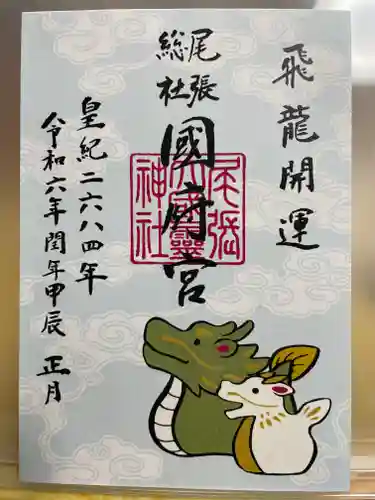 飛龍開運
尾張
総社
國府宮
尾張大國霊神社
皇紀二六八四年
令和六年閏年甲辰 正月